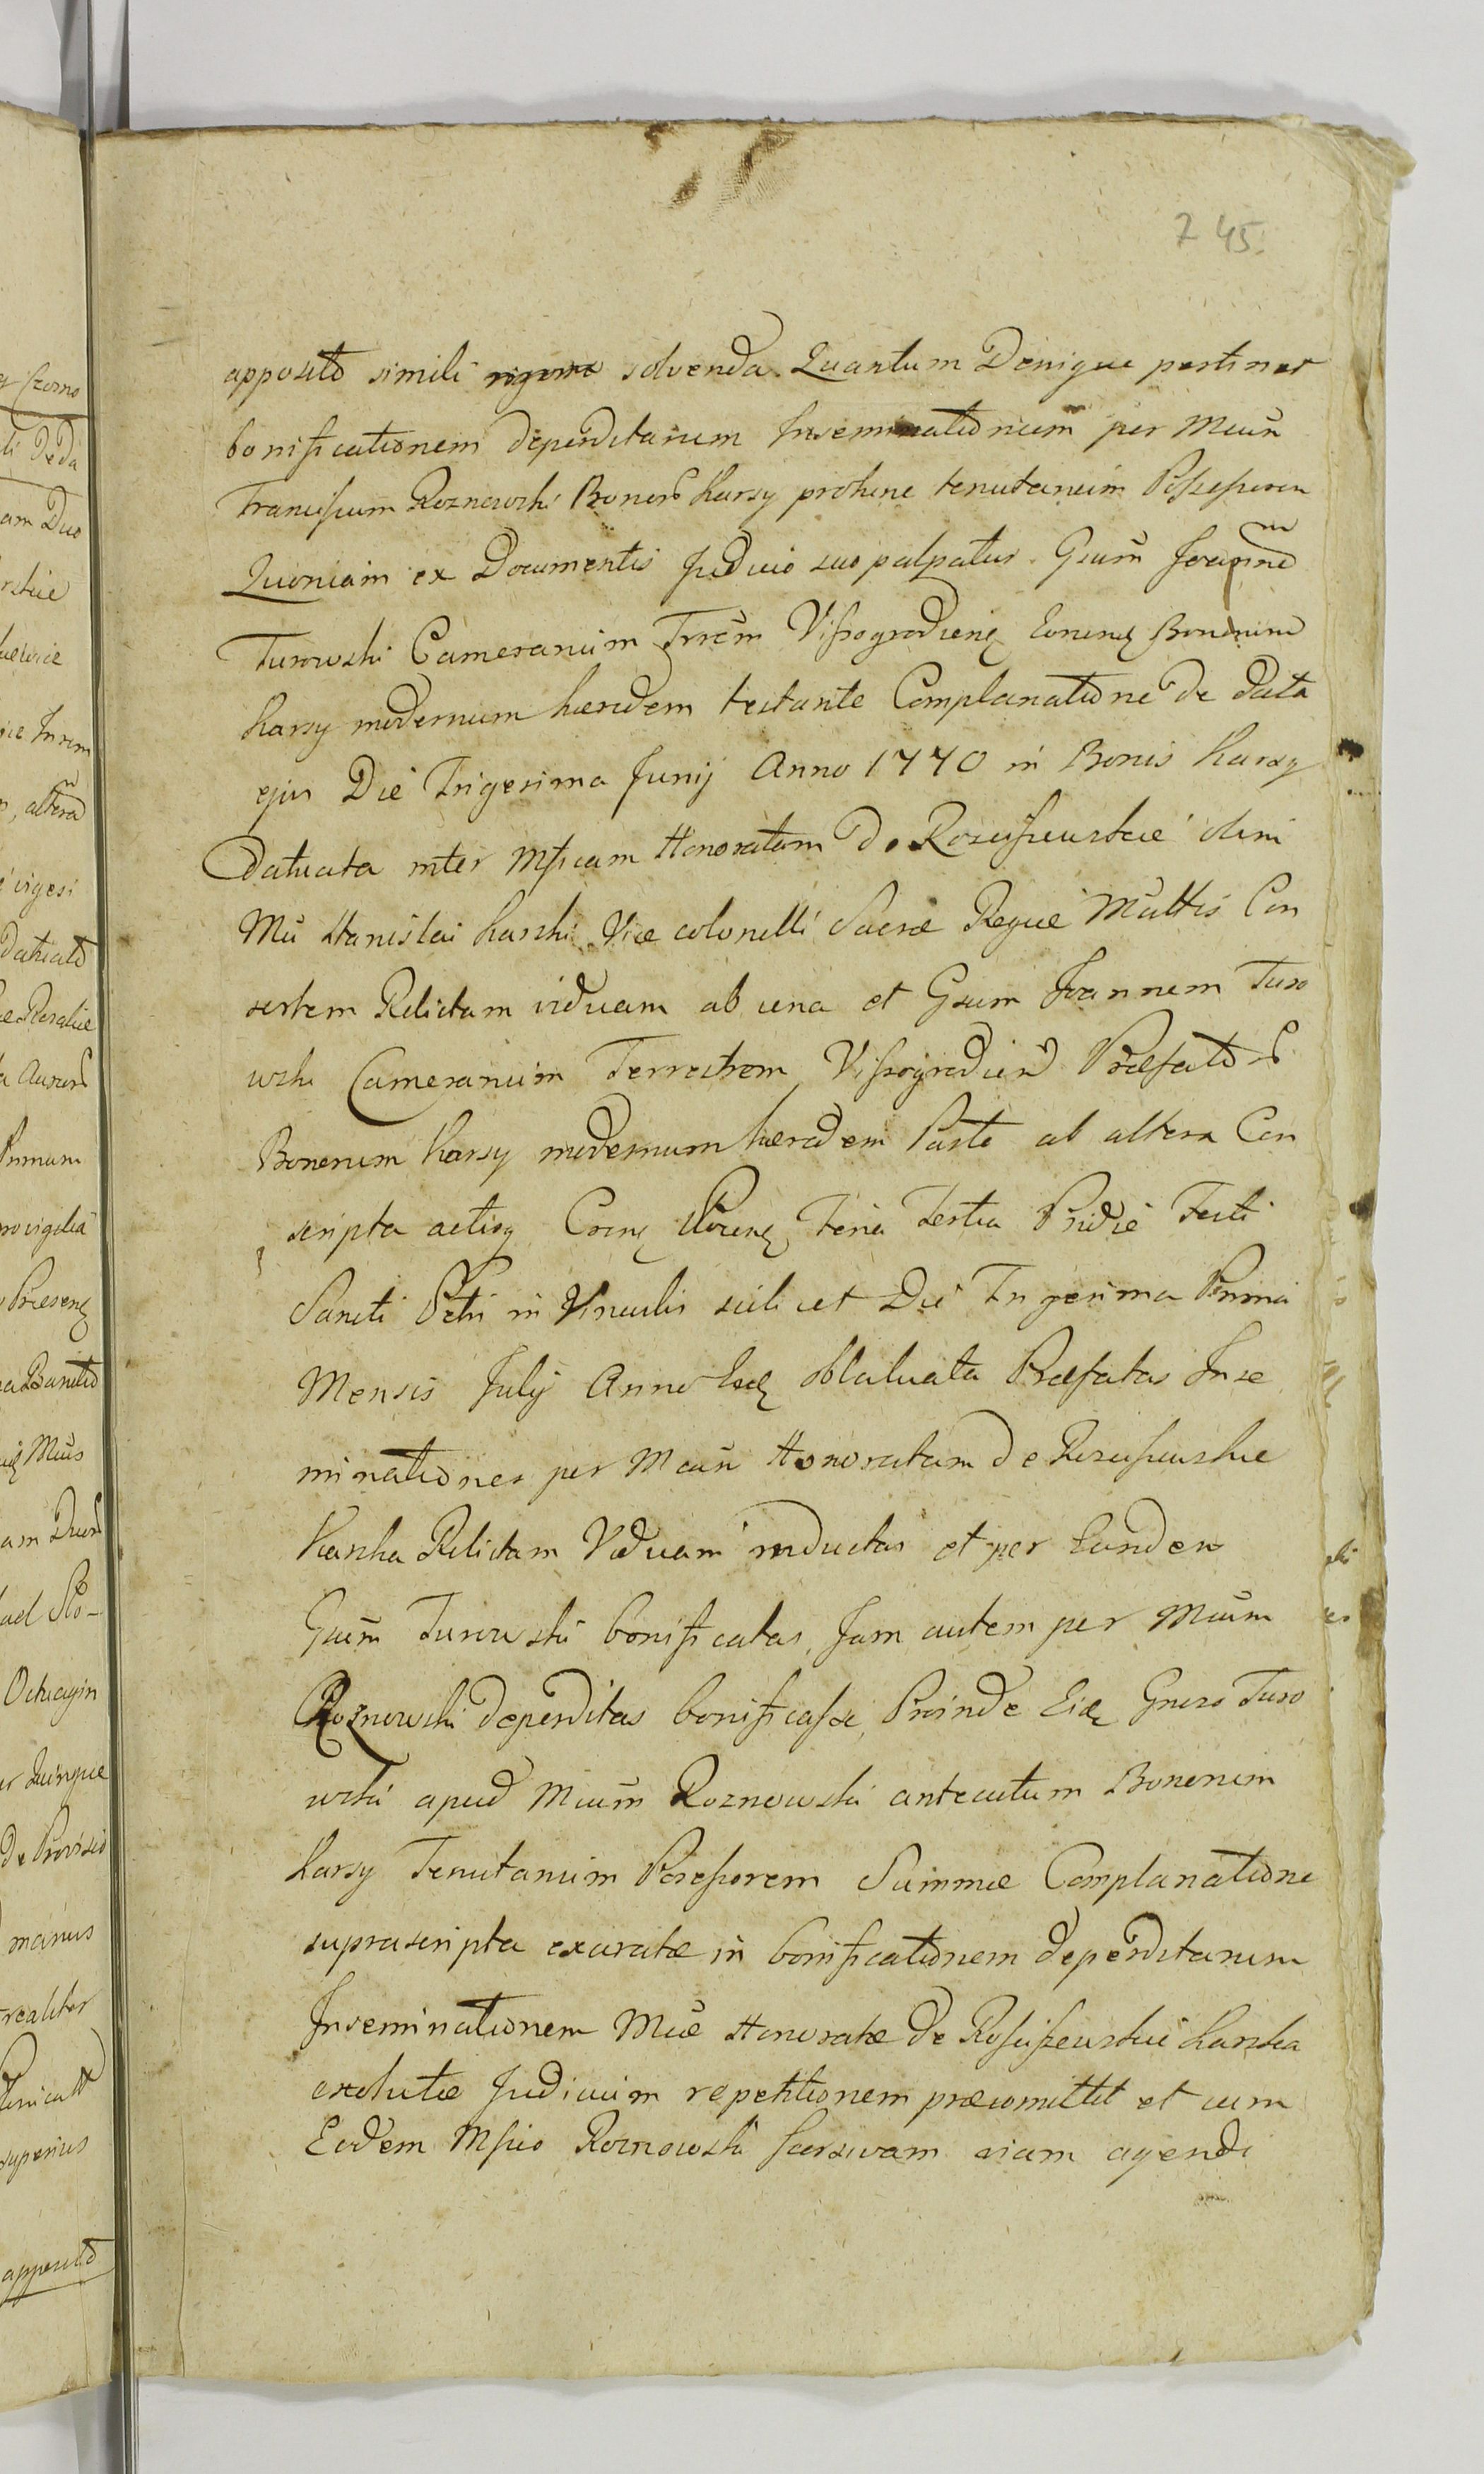 7 45.
apposito simili rigore solvenda. Quantum Denique pertinet
bonificationem deperditarum Inseminationum per Mcum
Franciscum Roznowski Bonor Karsy prohunc tenutarium Possessorem
Quoniam ex Documentis Judicio suo palpatur Gsum Joannem
Turowski Camerarium Trrem Vissogradieng Eorund Bonorum
Karsy modernum haeredem testante Complanatione de data
ejus Die Trigesima Junij Anno 1770 in Bonis Karsy
Datuata inter Mficam Honoratam de Rosciszewskie olim
Mci Stanislai Karski Vice colonelli Sacrae Regiae Mattis Con
sortem Relictam viduam ab una et Gsum Joannem Turo
wski Camerarium Terrestrem Vissogradien Praefator
Bonorum Karsy modernum haeredem Parte ab altera Con
scripta actisq Feria Tertia Pridie Festi
Sancti Petri in Vinculis scilicet Die Trigesima Prima
Mensis Julij Anno Eod oblatuata Praefatas Inse
minationes per Mcam Honoratam de Rosciszewskie
Karska Relictam Viduam inductas et per Eundem
Gsum Turowski bonificatas, Jam autem per Mcum
Roznowski deperditas bonificasse, Proinde Eid Gneroso Turo
wski apud Mcum Roznowski antecutum Bonorum
Karsy Tenutarium Possessorem Summae Complanatione
suprascripta exaratae in bonificationem deperditarum
Inseminationem Mcae Honoratae de Rosciszewskie Karska
exolutae Judicium repetitionem praecomittit et cum
Eodem Mfico Roznowski viam agendi